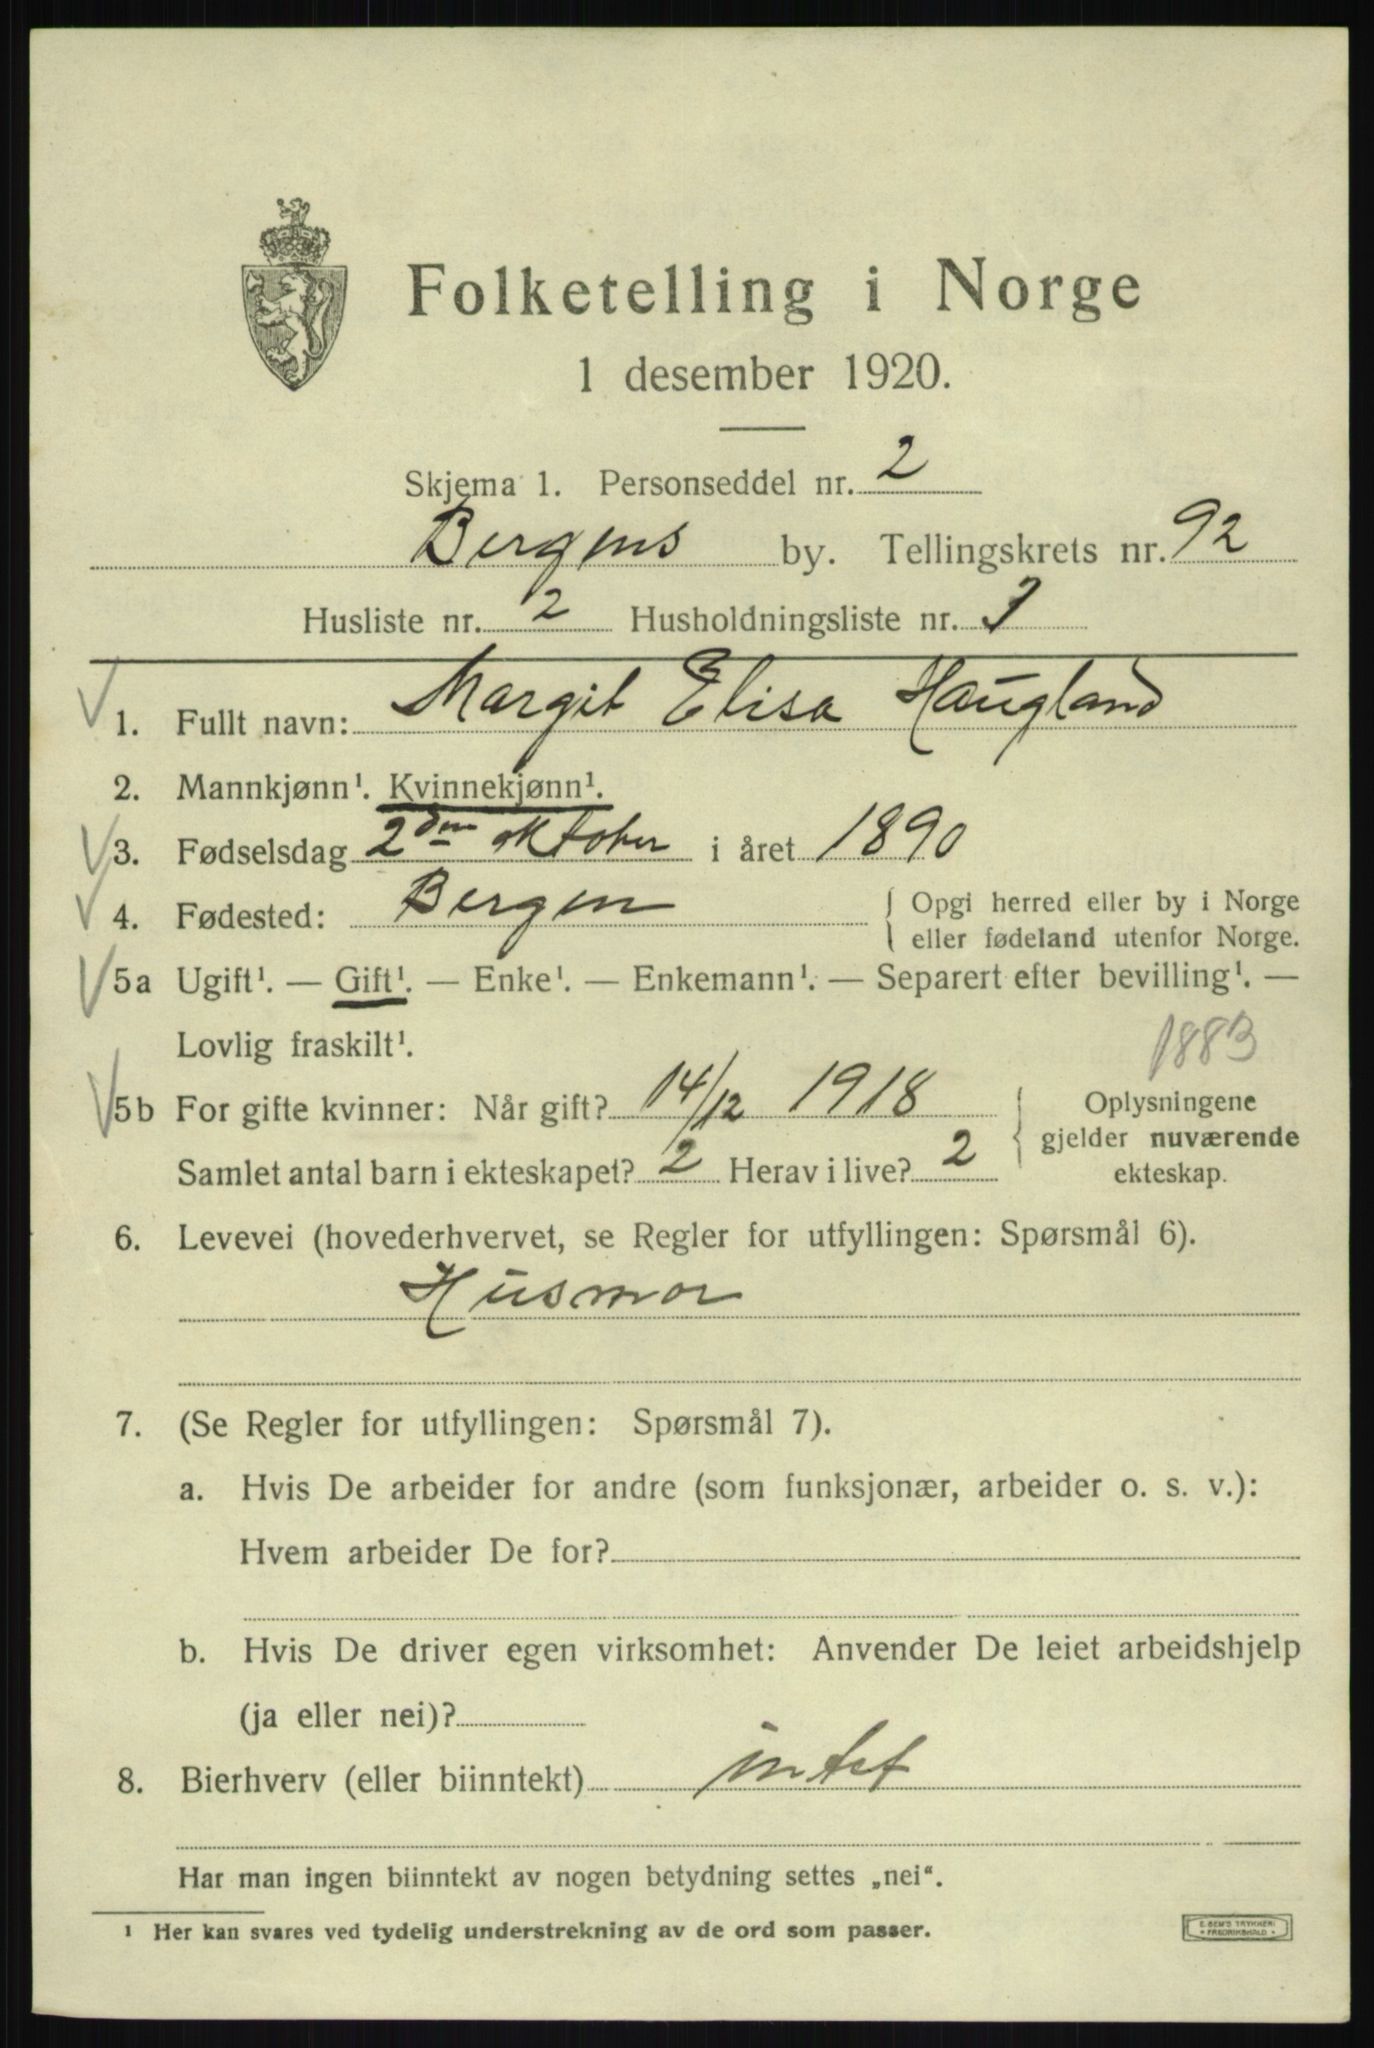 Folketelling i Norge
1 desember 1920.
Skjema 1. Personseddel nr. 2
Bergens by. Tellingskrets nr. 92
Husliste nr. 2 Husholdningsliste nr.
1. Fullt navn: Margit Elisa Haugland
2. Mannkjønn¹. Kvinnekjønn¹.
3. Fødselsdag 2den oktober i året 1890
4. Fødested: Bergen { Opgi herred eller by i Norge
eller fødeland utenfor Norge.
5a Ugift¹. — Gift¹. — Enke¹. — Enkemann¹. — Separert efter bevilling¹. —
Lovlig fraskilt¹.
1883
5b For gifte kvinner: Når gift? 14/12 1918 { Oplysningene
gjelder nuværende
Samlet antal barn i ekteskapet? 2 Herav i live? 2 ekteskap.
6. Levevei (hovederhvervet, se Regler for utfyllingen: Spørsmål 6).
Husmor
7. (Se Regler for utfyllingen: Spørsmål 7).
a. Hvis De arbeider for andre (som funksjonær, arbeider o. s. v.):
Hvem arbeider De for?
b. Hvis De driver egen virksomhet: Anvender De leiet arbeidshjelp
(ja eller nei)?
8. Bierhverv (eller biinntekt) intet
Har man ingen biinntekt av nogen betydning settes „nei“.
¹ Her kan svares ved tydelig understrekning av de ord som passer.
E. SEM'S TRYKKERI
• FREDRIKSHALD •